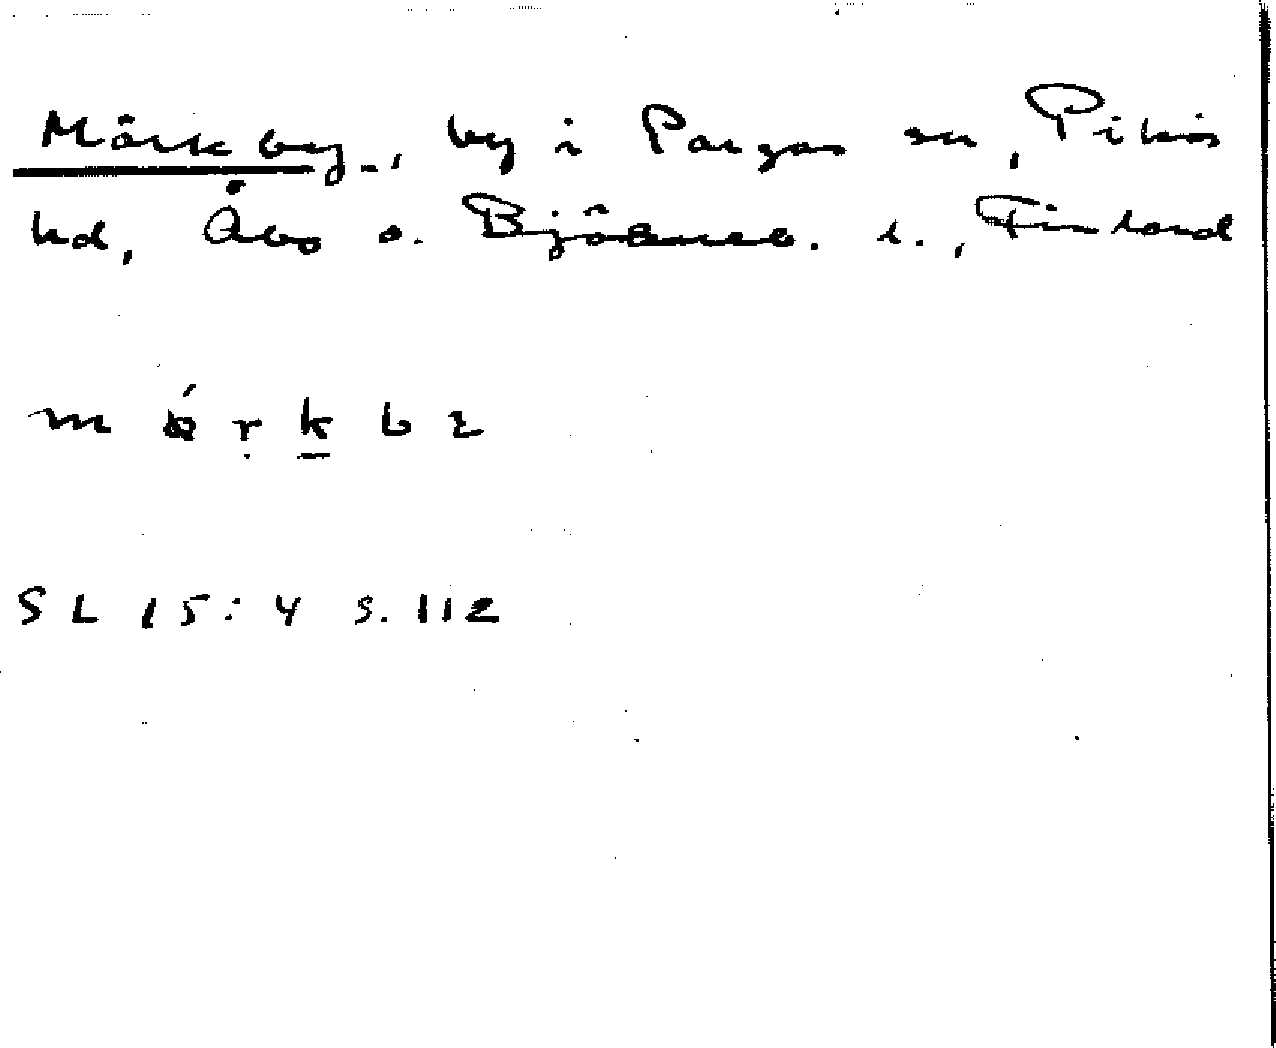 Mörkby, by i Pargas sn, Pikis
hd, Åbo o. Björneb. l., Finland
m r k b
SL 15:4 s. 112